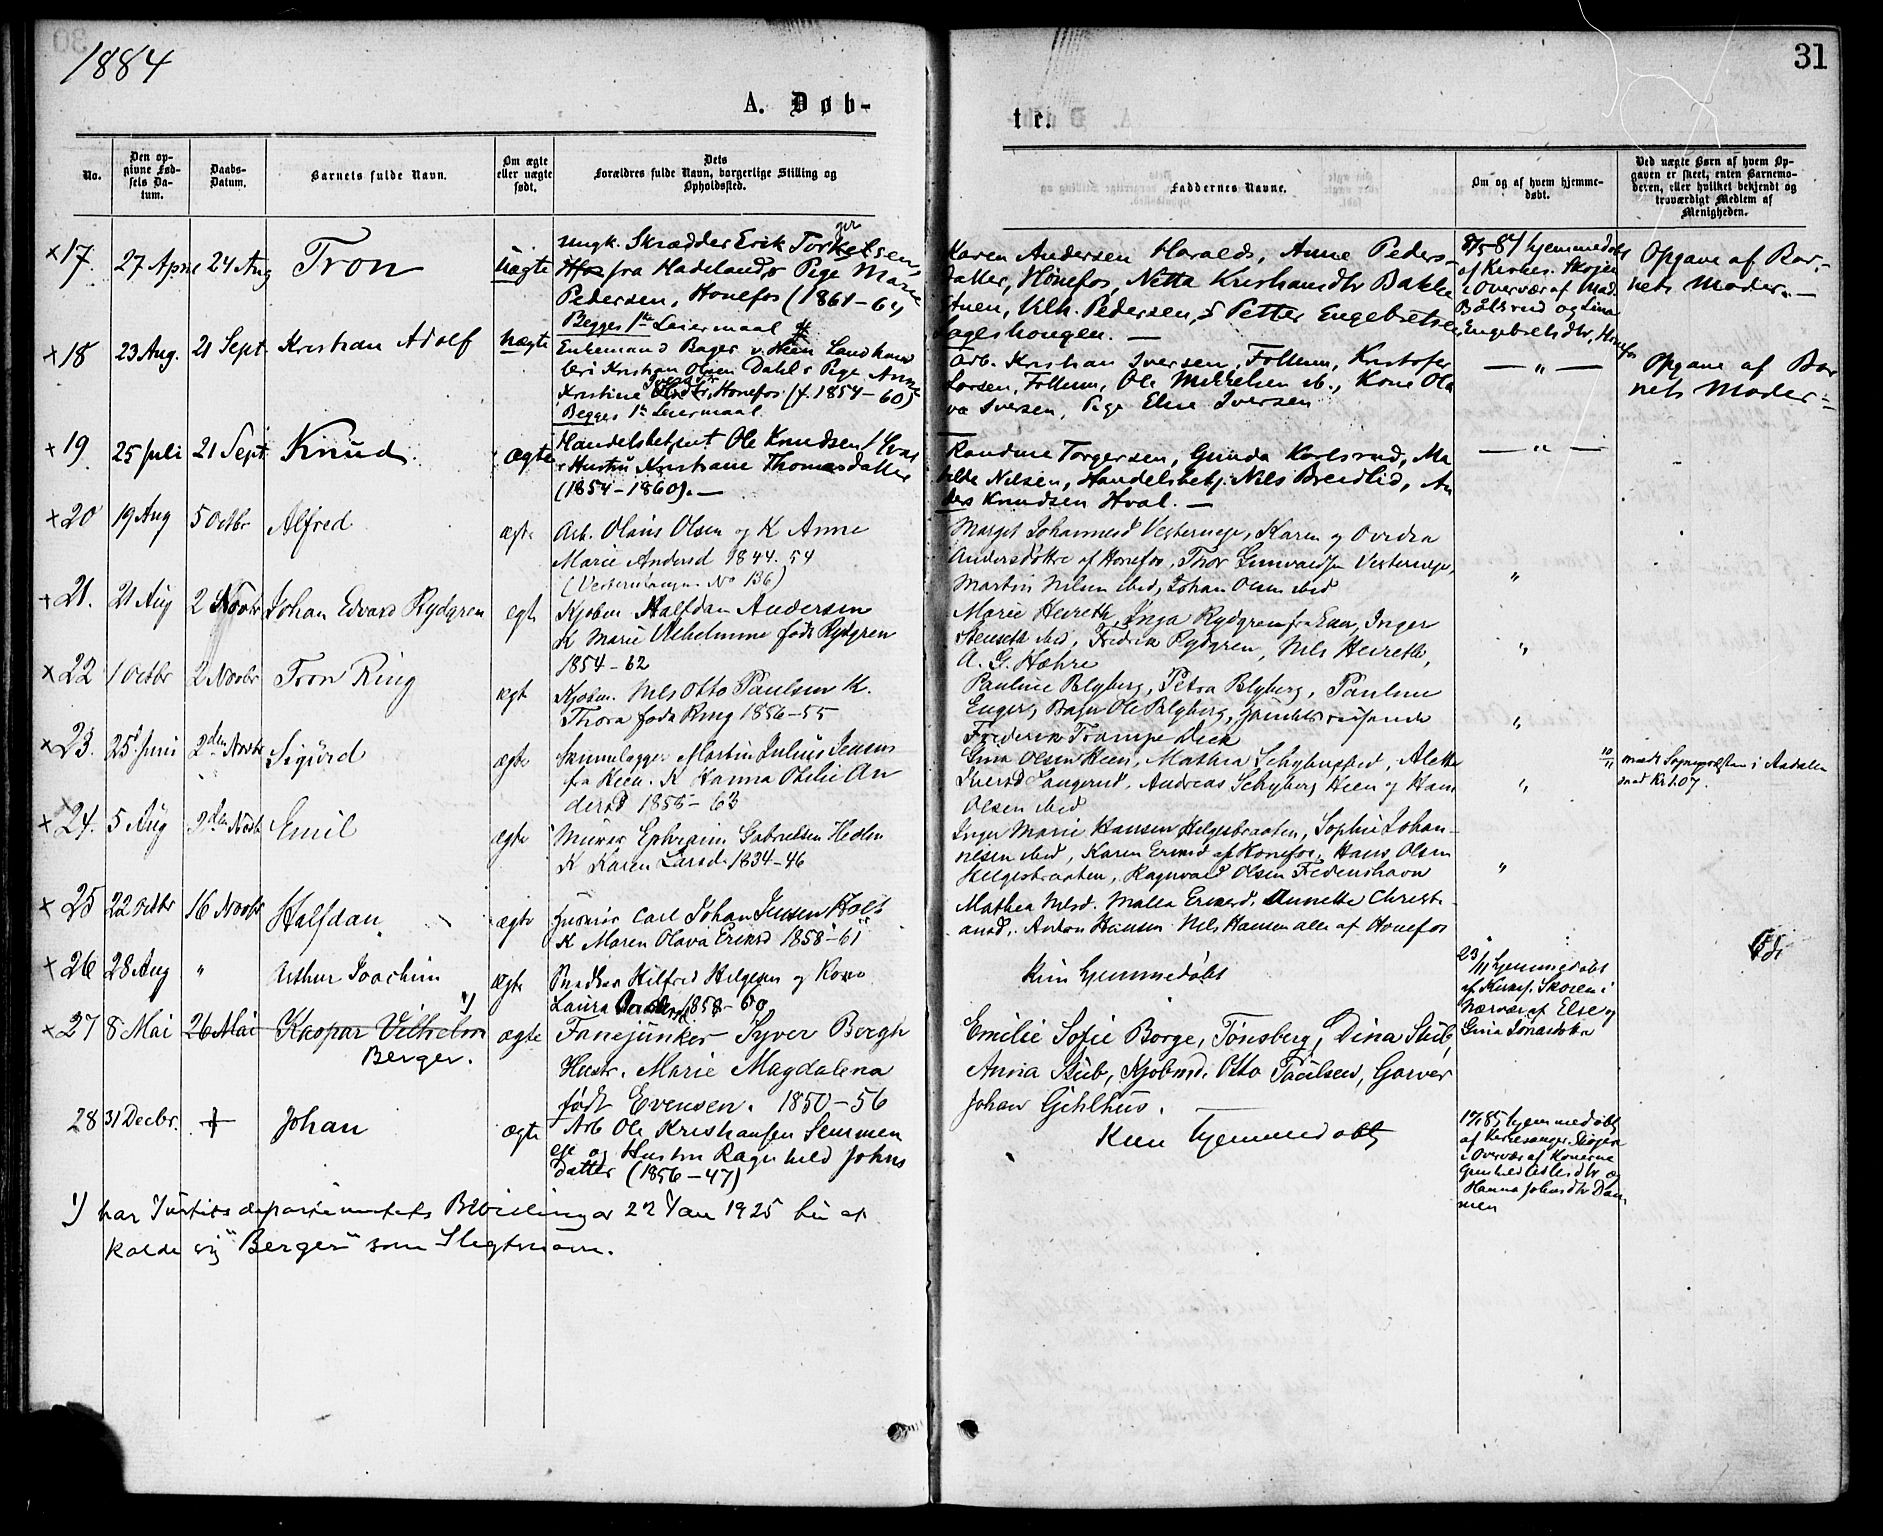 1884
31
A. Døb-
ter.
No.
Den op-
givne Fød-
sels Da-
tum.
Daabs-
Datum.
Barnets fulde Navn.
Om ægte
eller uægte
født.
Dets
Forældres fulde Navn, borgerlige Stilling og
Opholdssted.
Faddernes Navne.
Om og af hvem hjemme-
døbt.
Ved uægte Børn af hvem Op-
gaven er skeet, enten Barnemo-
deren, eller hvilket bekjendt og
troværdigt Medlem af
Menigheden.
17. 27 April 24 Aug Tron uægte
Ungk. Skrædder Erik Torkelsen
fra Hadeland & Pige Marie
Pedersen, Hønefos (1861-64)
Begges 1ste Leiermaal
Karen Andersen Haralds, Anne Peders-
datter, Hønefos, Netta Kristiansdtr Bakke
Stuen, Vilh. Pedersen, & Petter Engebretsen
hjemmedøbt
i Overvær af Mad.
Bålsrud og Lina
Engebretsdtr, Hønefos
Opgave af Bar-
nets Moder. —
18 23 Aug. 21 Sept. Kristian Adolf uægte
Enkemand Bager v. Heen Landhand
leri Kristian Olsen Dahl & Pige Anne
Kristine Hønefos (f. 1854-60)
Begges 1ste Leiermaal.
Arb. Kristian Iversen, Follum, Kristofer
Larsen, Follum, Ole Mikkelsen ib., Kone Ola
va Iversen, Pige Elise Iversen
— " —
Opgave af Bar
nets Moder
19 25 Juli 21 Sept. Knud ægte
Handelsbetjent Ole Knudsen Hval
& Hustru Kristiane Thomasdatter
(1854-1860). —
Randine Torgersen, Gunda Karlsrud, Ma
tilde Nilsen, Handelsbetj. Nils Breidlid, An
ders Knudsen Hval. —
— " —
20 19 Aug 5 Octbr Alfred ægte
Arb. Olaus Olsen og K Anne
Marie Andersd 1844. 54
(Vesternbagen No 136)
Marget Johannesd Vesterneje, Karen og
Andersdøttre af Hønefos, Thor Gunvaldsen Vesterneje,
Martin Nilsen ibid, Johan Olsen ibid
"
21. 21 Aug 2 Novbr Johan Edvard Rydgren ægte
Kjøbm Halfdan Andersen
K Marie Vilhelmine født Rydgren
1854-62
Marie Heireth, Inga Rydgren fra Eker, Inger
ibid, Fredrik Rydgren, Nils Heireth,
A. G. Hæhre
"
22 1 Octbr 2 Novbr Tron Ring ægt
Kjøbm. Nils Otto Paulsen K.
Thora født Ring 1856-55
Pauline Blyberg, Petra Blyberg, Pauline
Enger, Bager Ole Blyberg, Handelsreisende
Frederik Trampe Dick
"
23. 25 Juni 2den Novbr Sigurd ægte
Martin Julius Jensen
fra Heen. K Hanna Otilie An
dersd 1855-63
Gina Olsen Heen, Mathea Schyberg ibid, Alette
Iversd Tangerud, Andreas Schyberg Heen og Hans
Olsen ibid
"
10/11
medt Sognepræsten i Aadalen
24. 5 Aug 2den Novb Emil ægte
Murer Ephraim Gabrielsen Hedlen
K Karen Larsd. 1834-46
Inger Marie Hansen Helgesbraaten, Sophie Johan-
nesen ibid, Karen Eriksd af Hønefos, Hans Olsen
Helgesbraaten, Ragnvald Olsen Fredenshavn
"
25 22 Octbr 16 Novbr Halfdan ægte
Carl Johan Jensen Holt
K Maren Olava Eriksd 1858-61
Mathea Nilsd. Malla Eriksd. Annette Christi-
ansd, Anton Hansen Nils Hansen alle af Hønefos
26 28 Aug " Arthur Joachim ægte
Snedker Hilfred Helgesen og Kone
Laura 1858-60
Kun hjemmedøbt
23/11 hjemmedøbt
af Kirkes. Skoien i
Nærvær af Else og
27 8 Mai 26 Mai Kaspar Vilhelm 1)
Berger. ægte
Fanejunker Syver Bergh
Hustr. Marie Magdalena
født Evensen. 1850-56
Emilie Sofie Borge, Tønsberg, Dina Stub,
Anna Stub, Kjøbmd. Otto Paulsen, Garver
Johan Gihlhus.
28 31 Decbr. Johan ægte
Arb Ole Kristiansen Semmen
eje og Hustru Ragnhild Johns
datter (1856-47)
Kun hjemmedøbt
hjemmedøbt
af Kirkesanger Skøien
i Overvær af Konerne
Hanna Johnsdtr Dam
men
1) har Justitsdepartementets Bevilling av 22 Jan 1925 til at
kalde sig "Berger" som Slegtsnavn.